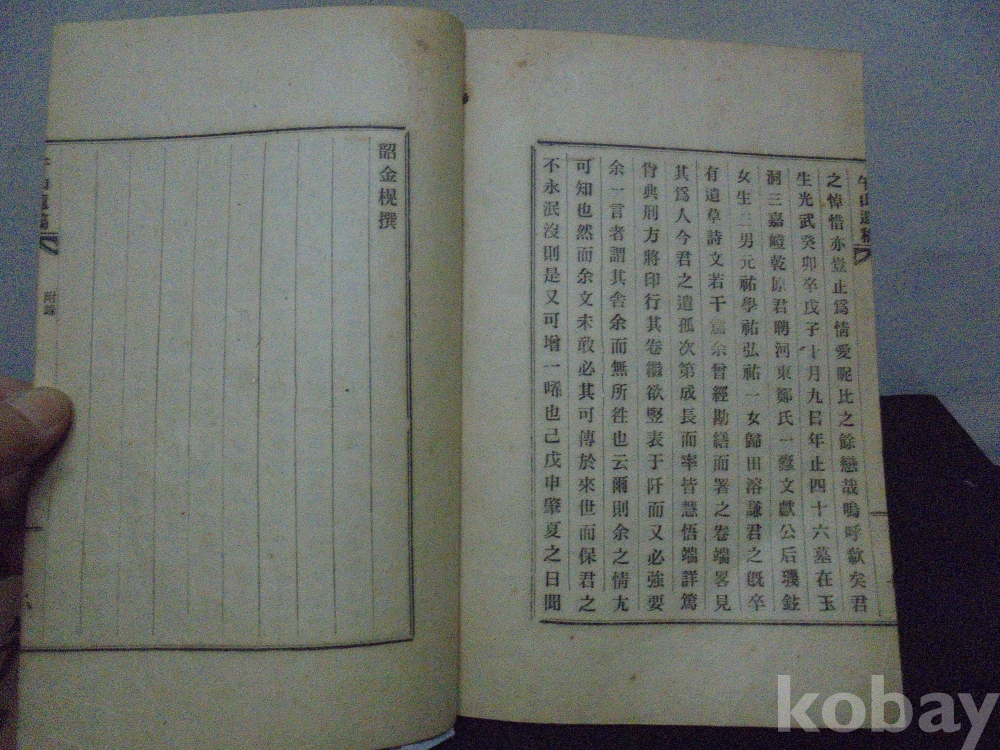 午山遺稿
之悼惜亦豈止爲情愛昵比之餘戀哉嗚呼欷矣君
生光武癸卯卒戊子十月九日年止四十六墓在玉
洞三嘉嶝乾原君聘河東鄭氏一 文獻公后璣鉉
女生三男元祐學祐弘祐一女歸田溶謙君之旣卒
有遺草詩文若干篇余曾經勘繕而署之卷端畧見
其爲人今君之遺孤次第成長而率皆慧悟端詳篤
肯典刑方將印行其卷繼欲竪表于阡而又必強要
余一言者謂其舍余而無所徃也云爾則余之情尢
可知也然而余文未敢必其可傳於來世而保君之
不永泯沒則是又可增一唏也已戊申肇夏之日聞
韶金棿撰
山遺稿
附錄
kobay